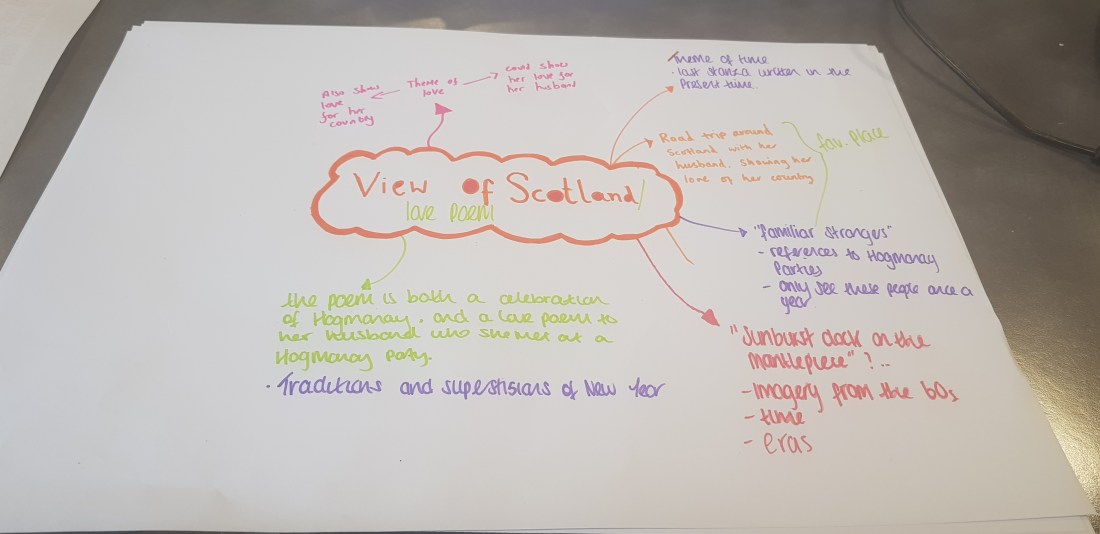 Theme of time
- last stanza written in the
Present time.
Also shows
love
for her
country
Theme of
love
could show
her love for
her husband
Road trip around
Scotland with her
husband. Showing her
love of her country
fav. place
View of Scotland/
love poem
"familiar strangers"
- references to Hogmanay
Parties
- only see these people once a
year
the poem is both a celebration
of Hogmanay, and a love poem to
her husband who she met at a
Hogmanay Party.
· Traditions and superstisians of New Year
"Sunburst clock on the
mantlepiece" ?..
- Imagery from the 60s
- time
- eras